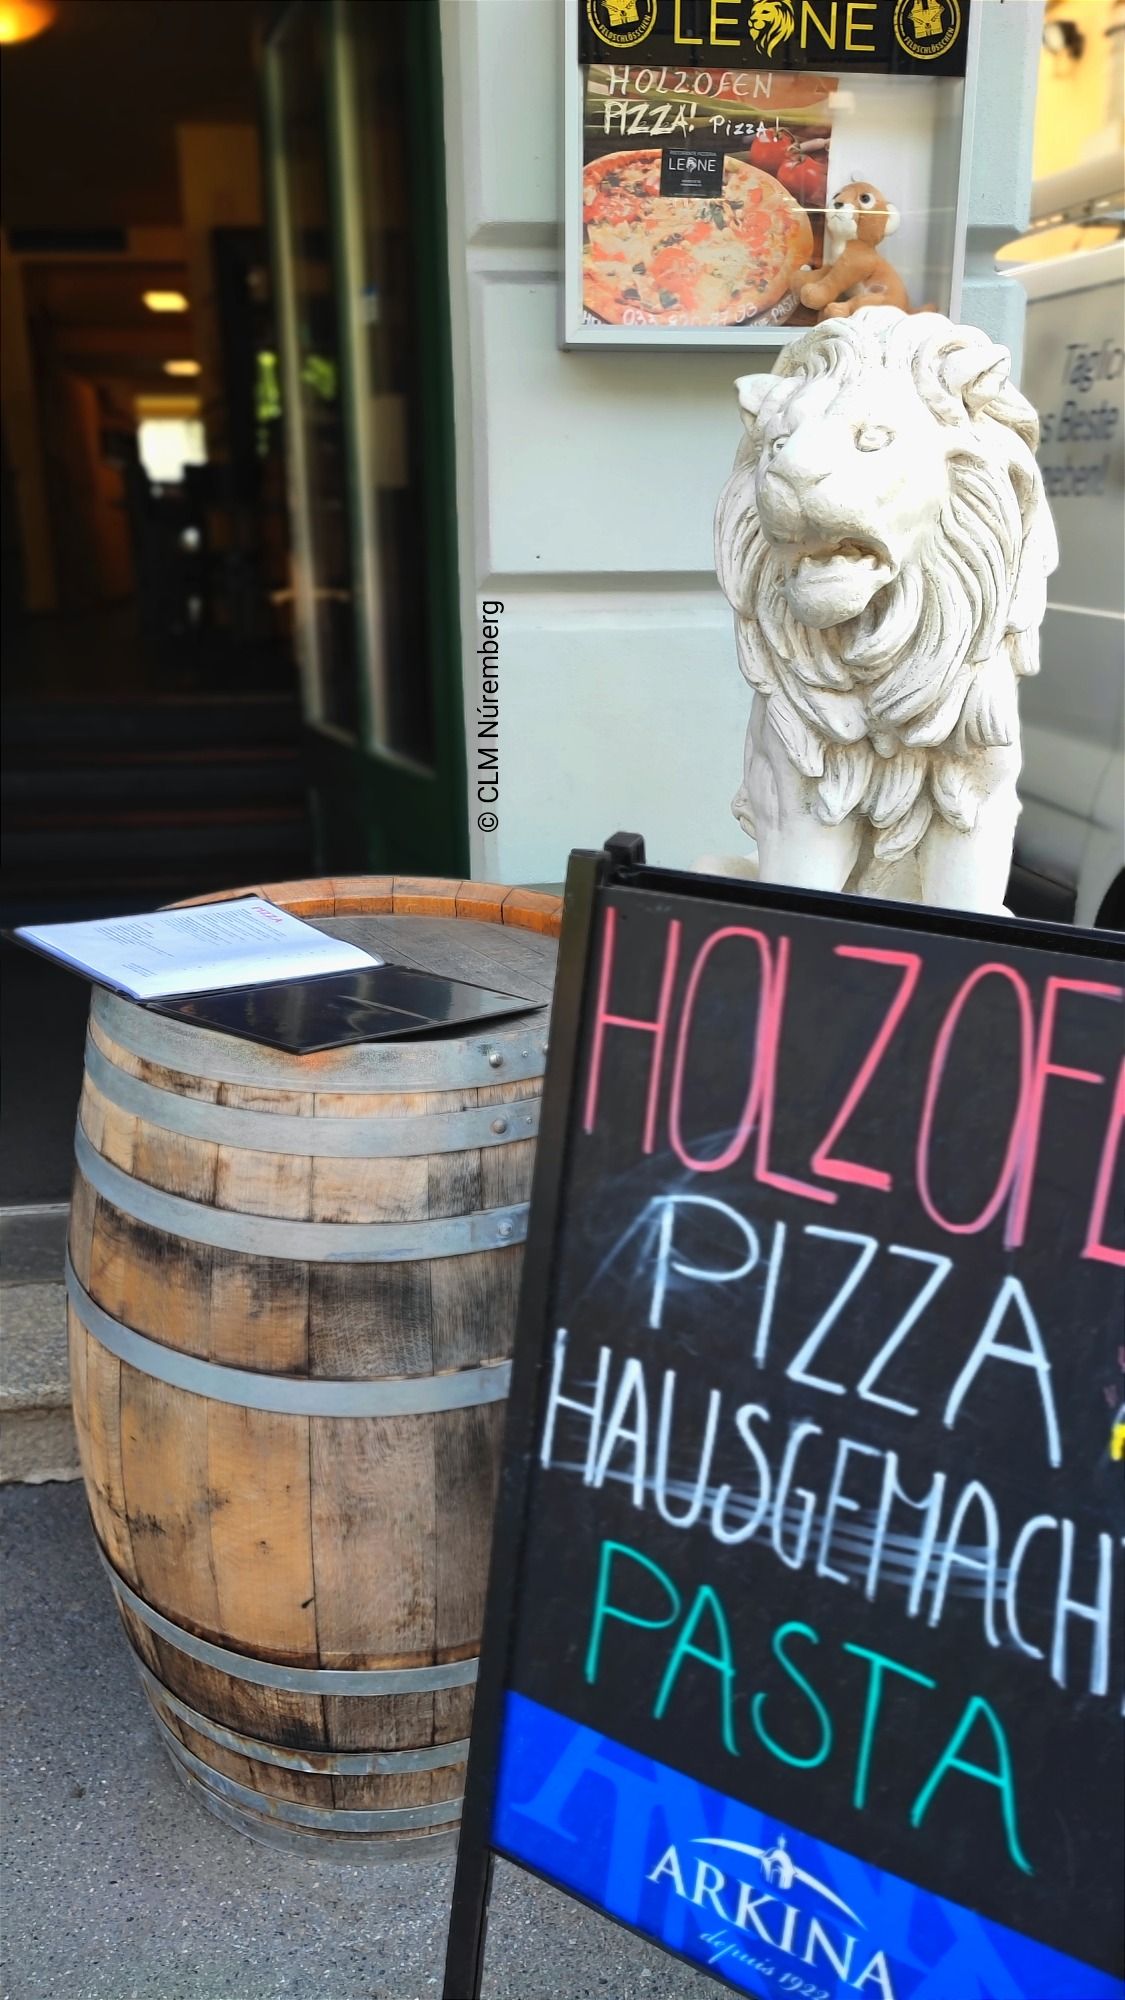 LEONE
FELDSCHLÖSSCHEN
HOLZOFEN
PIZZA! Pizza!
LEONE
Täglic
s Beste
eben!
© CLM Núremberg
PIZZA
HOLZOFE
PIZZA
HAUSGEMACHT
PASTA
ARKINA
depuis 1922